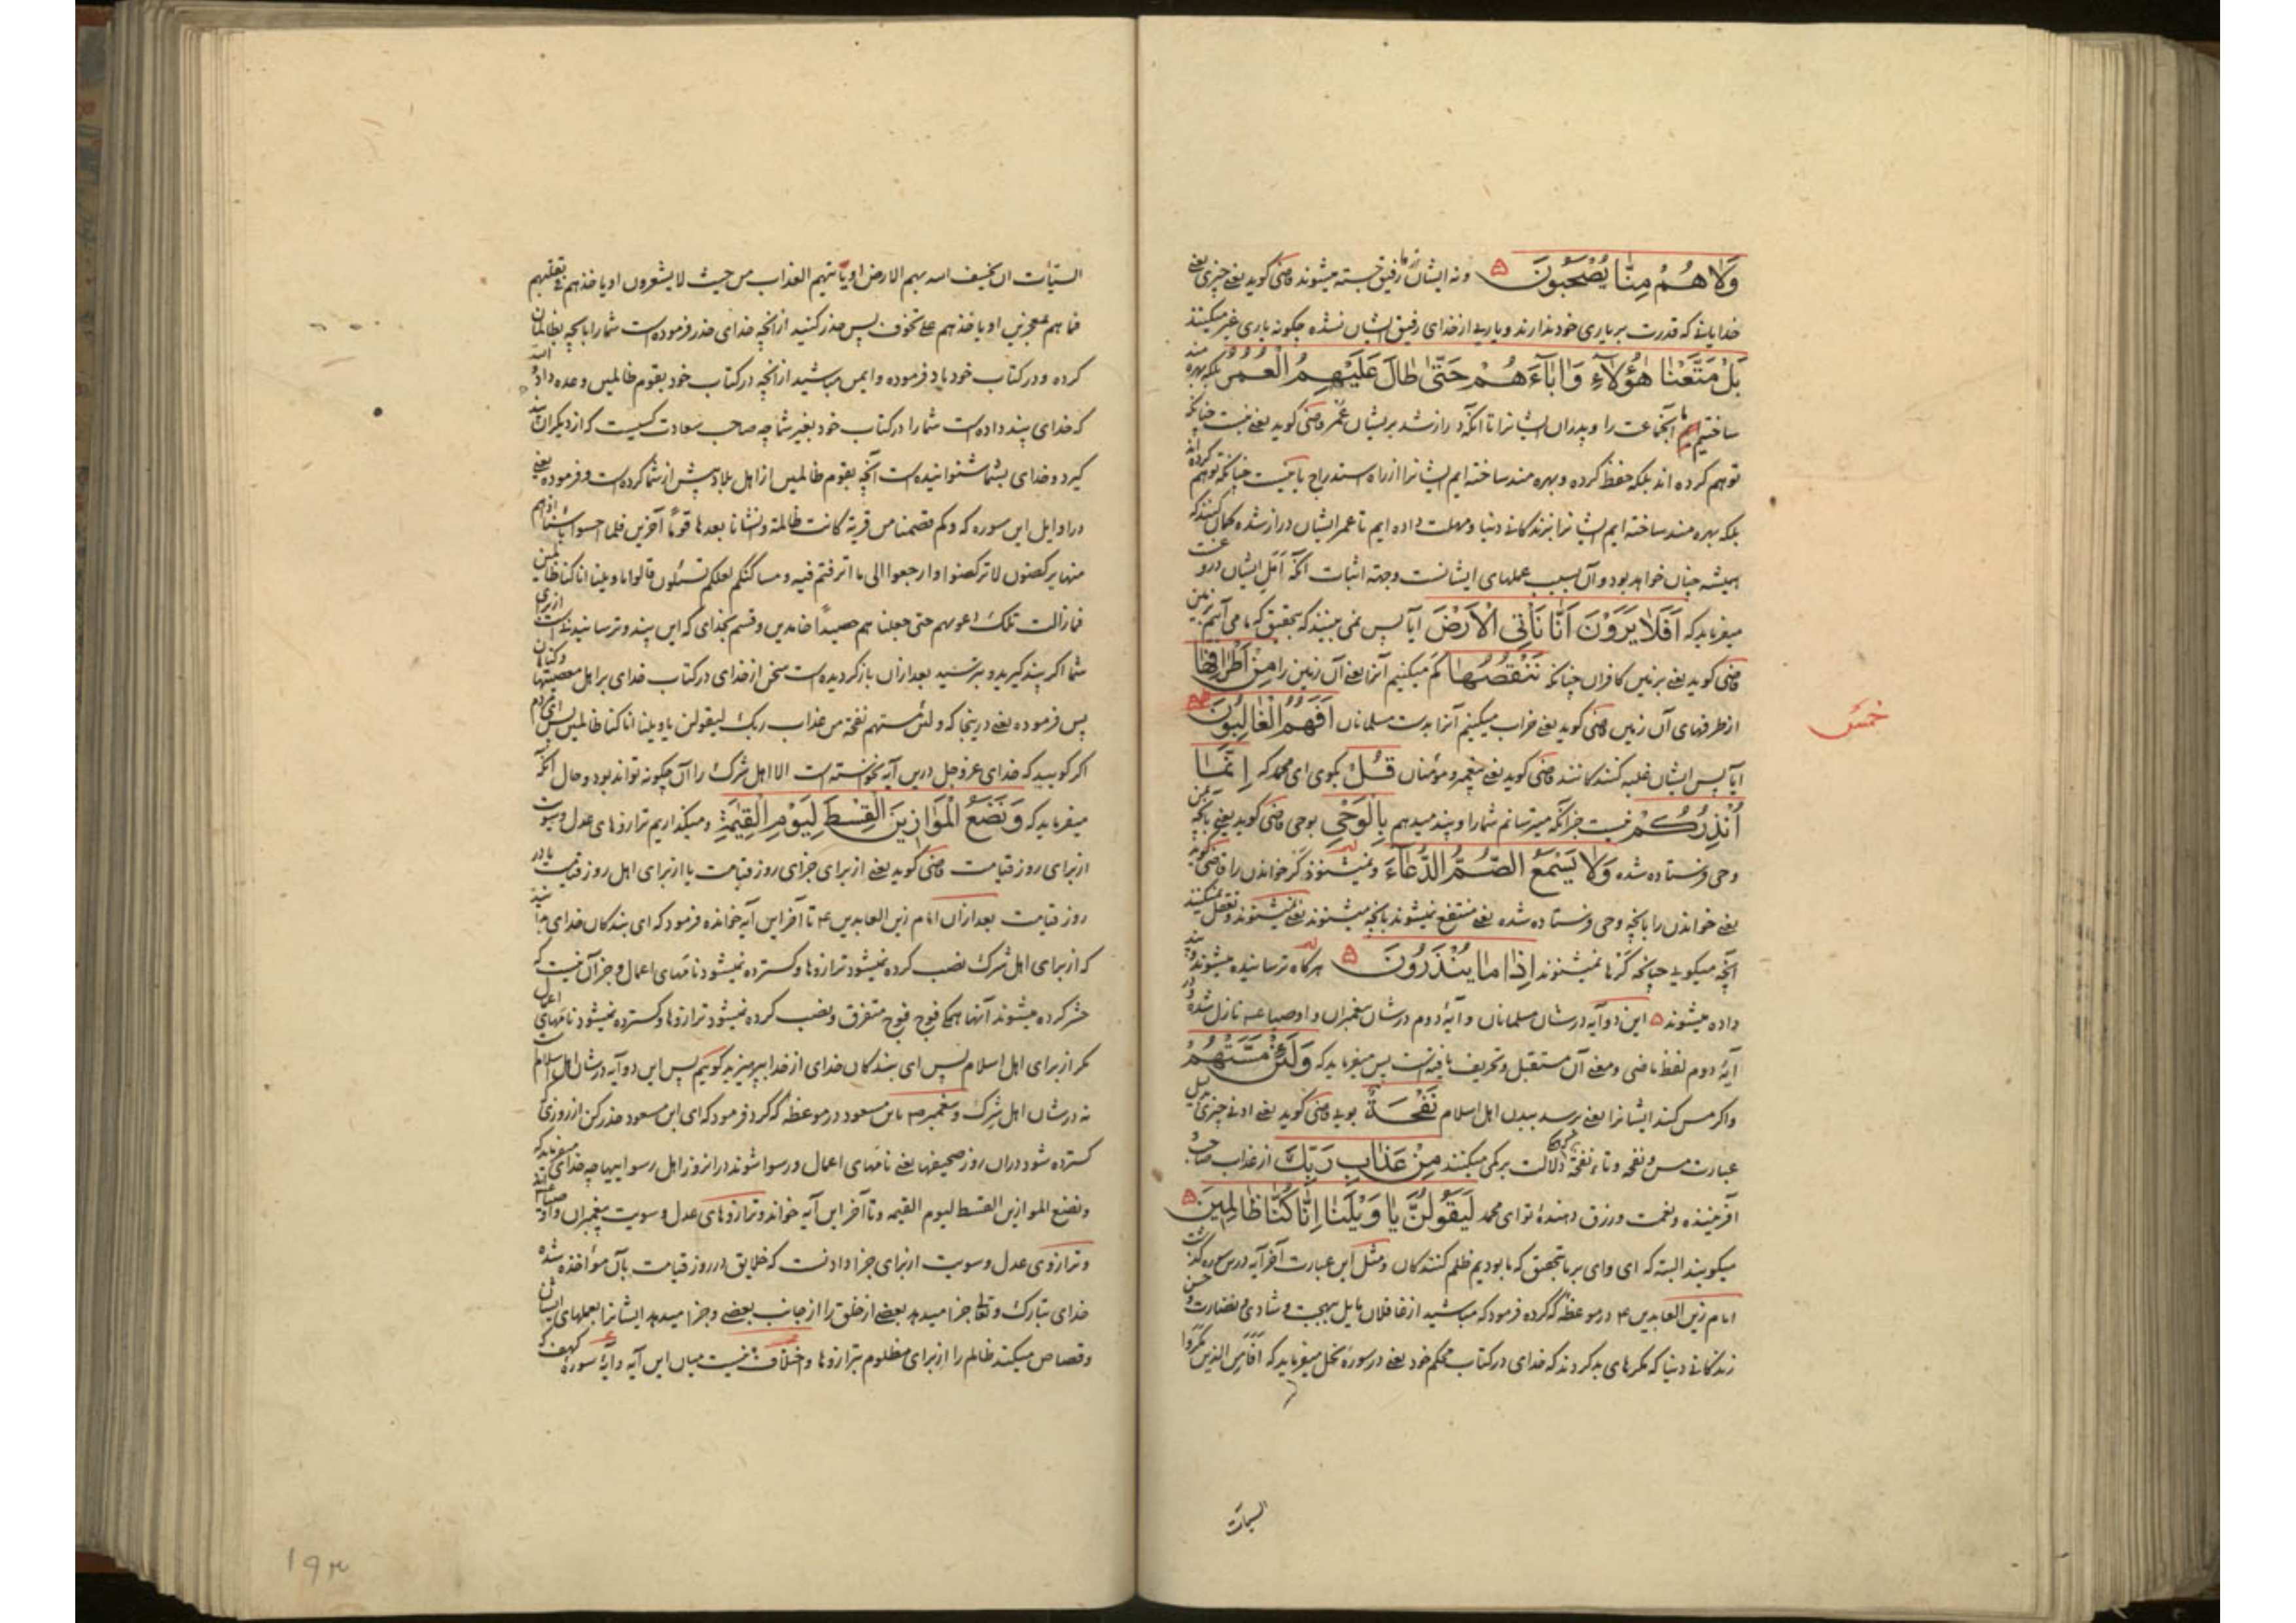 وَلَا هُمْ مِنَّا يُصْحَبُونَ ۵ ونه ایشان از ما رفیق جسته میشوند قاضی کوید یعنی چیزی یعنی
خدایانی که قدرت بر یاری خود ندارند ویاری از خدای رفیق ایشان نشده چکونه یاری غیر میکنند
بَلْ مَتَّعْنَا هٰؤُلَآءِ وَاٰبَآءَهُمْ حَتّٰى طَالَ عَلَيْهِمُ الْعُمُرُ بلکه بهره مند
ساختیم ما آنجماعت را وپدران ایشانرا تا آنکه دراز شد بریشان عمر قاضی کوید یعنی نیست چنانکه
توهم کرده اند بلکه حفظ کرده وبهره مند ساخته ایم ایشانرا از راه استدراج یا نیست چنانکه توهم کرده اند
بلکه بهره مند ساخته ایم ایشانرا بزندکانی دنیا ومهلت داده ایم تا عمر ایشان دراز شده کمان کنند که
همیشه چنان خواهد بود وآن بسبب عملهای ایشانست وجهة اثبات آنکه امل ایشان دروغست
میفرماید که اَفَلَا يَرَوْنَ اَنَّا نَأْتِي الْاَرْضَ آیا پس نمی بینند که بتحقیق که ما می آییم زمین
قاضی کوید یعنی بزمین کافران چنانکه نَنْقُصُهَا کم میکنیم آنرا یعنی آن زمین را مِنْ اَطْرَافِهَا
از طرفهای آن زمین قاضی کوید یعنی خراب میکنیم آنرا بدست مسلمانان اَفَهُمُ الْغَالِبُونَ
آیا پس ایشان غلبه کنندکانند قاضی کوید یعنی پیغمبر ومؤمنان قُلْ بکوی ای محمد که اِنَّمَا
اُنْذِرُكُمْ نیست جز آنکه میترسانم شما را وپند میدهم بِالْوَحْيِ بوحی قاضی کوید یعنی بآنچه
وحی فرستاده شده وَلَا يَسْمَعُ الصُّمُّ الدُّعَآءَ ونمیشنوند کر خواندن را قاضی کوید
یعنی خواندن را بآنچه وحی فرستاده شده یعنی منتفع نمیشوند بآنچه میشنوند یعنی نمیشنوند وتعقل نمیکنند
آنچه میکویی چنانچه کرها نمیشنوند اِذَا مَا يُنْذَرُونَ ۵ هر کاه ترسانیده میشوند وپند
داده میشوند ۵ این دو آیه در شان مسلمانان وآیهٔ دوم در شان پیغمبران واوصیا نازل شده ودر
آیهٔ دوم لفظ ماضی ومعنی آن مستقبل وتحریف یافته است پس میفرماید که وَلَئِنْ مَسَّتْهُمْ
واکر مس کند ایشانرا یعنی برسد ببدن اهل اسلام نَفْحَةٌ بویی قاضی کوید یعنی ادنی چیزی
عبارت مس ونفحه وتاء نفحة دلالت بر کمی میکنند مِنْ عَذَابِ رَبِّكَ از عذاب صاحب
آفریننده ونعمت ورزق دهندهٔ تو ای محمد لَيَقُولُنَّ يَا وَيْلَنَا اِنَّا كُنَّا ظَالِمِينَ ۵
میکویند البته که ای وای بر ما بتحقیق که ما بودیم ظلم کنندکان ومثل این عبارت آخر آیه درین سوره کذشت
امام زین العابدین ۴ در موعظه که کرده فرمود که مباشید از غافلان مایل ببهجت وشادی ونضارت وحسن
زندکانی دنیا که مکرهای بد کردند که خدای در کتاب محکم خود یعنی در سورهٔ نحل میفرماید که افامن الذین مکروا
السیئات
خمس
السیئات ان یخسف الله بهم الارض او یاتیهم العذاب من حیث لا یشعرون او یاخذهم فی تقلبهم
فما هم بمعجزین او یاخذهم علی تخوف پس حذر کنید از آنچه خدای حذر فرموده است شما را بآنچه بظالمان
کرده ودر کتاب خود یاد فرموده وایمن مباشید از آنچه در کتاب خود بقوم ظالمین وعده داده
که خدای پند داده است شما را در کتاب خود بغیر شما چه صاحب سعادت کسیست که از دیکران پند
کیرد وخدای بشما شنوانیده است آنچه بقوم ظالمین از اهل بلاد پیش از شما کرده است وفرموده یعنی
در اوایل این سوره که وکم قصمنا من قریة کانت ظالمة وانشانا بعدها قوماً آخرین فلما احسوا باسنا اذا هم
منها یرکضون لا ترکضوا وارجعوا الی ما اترفتم فیه ومساکنکم لعلکم تسئلون قالوا یا ویلنا انا کنا ظالمین
فما زالت تلک دعویهم حتی جعلنا هم حصیداً خامدین وقسم بخدای که این پند وترسانیدنست از برای
شما اکر پند کیرید وبترسید بعد ازان باز کردیده است سخن از خدای در کتاب خدای بر اهل معصیتها وکناهان
پس فرموده یعنی درینجا که ولئن مستهم نفحة من عذاب ربک لیقولن یا ویلنا انا کنا ظالمین پس ای مردم
اکر کویید که خدای عز وجل درین آیه نخواسته است الا اهل شرک را آن چکونه تواند بود وحال آنکه
میفرماید که وَنَضَعُ الْمَوَازِينَ الْقِسْطَ لِيَوْمِ الْقِيٰمَةِ ومیکذاریم ترازوهای عدل وسویت
از برای روز قیامت قاضی کوید یعنی از برای جزای روز قیامت یا از برای اهل روز قیامت یا در
روز قیامت بعد ازان امام زین العابدین ۴ تا آخر این آیه خوانده فرمود که ای بندکان خدای بدانید
که از برای اهل شرک نصب کرده نمیشود ترازوها وکسترده نمیشود نامهای اعمال وجز آن نیست که
حشر کرده میشوند آنها همکی فوج فوج متفرق ونصب کرده نمیشود ترازوها وکسترده نمیشود نامهای اعمال
مکر از برای اهل اسلام پس ای بندکان خدای از خدا بپرهیزید کوییم پس این دو آیه در شان اهل اسلام است
نه در شان اهل شرک وپیغمبر ص بابن مسعود در موعظه که کرد فرمود که ای ابن مسعود حذر کن از روزی که
کسترده شود دران روز صحیفها یعنی نامهای اعمال ورسوا شوند در انروز اهل رسواییها چه خدای میفرماید که
ونضع الموازین القسط لیوم القیمه وتا آخر این آیه خواند وترازوهای عدل وسویت پیغمبران واوصیا اند
وترازوی عدل وسویت از برای جزا دادنست که خلایق در روز قیامت بآن مواخذه شده
خدای تبارک وتعالی جزا میدهد بعضی از خلق را از جانب بعضی وجزا میدهد ایشانرا بعملهای ایشان
وقصاص میکند ظالم را از برای مظلوم بترازوها واختلاف نیست میان این آیه وآیهٔ سوره کهف که
۱۹۳